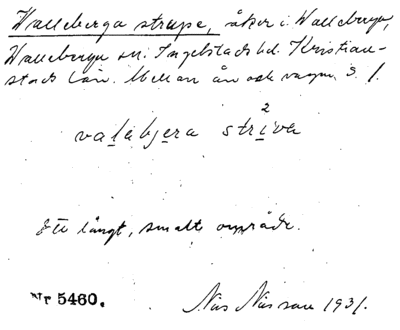 Walleberga strupe, åker i Walleberga,
Walleberga sn. Ingelstads hd. Kristian-
stads län. Mellan ån och vägen. S.
valabjera striva
2
Ett långt, smalt område.
Nr 5460. Nils Nilsson 1931.